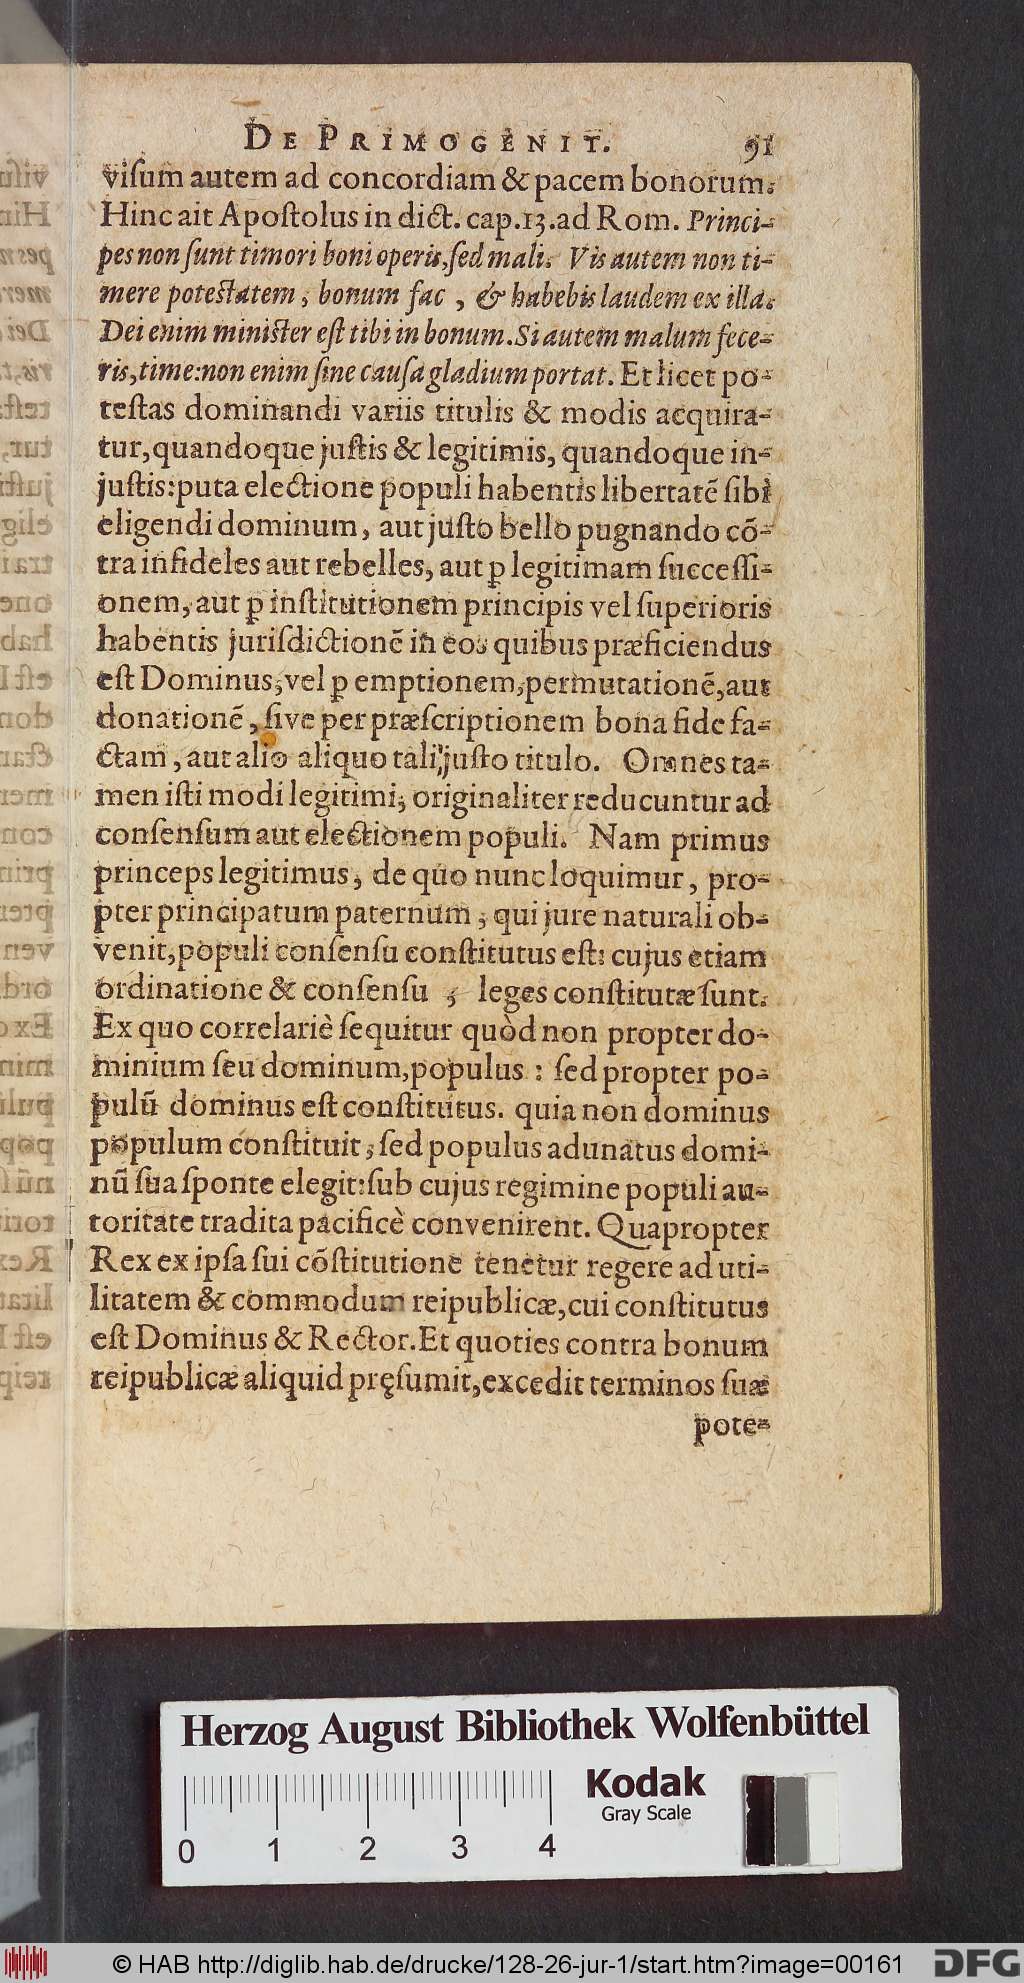 DE PRIMOGENIT. 91
viſum autem ad concordiam & pacem bonorum.
Hinc ait Apoſtolus in dict. cap.13. ad Rom. Princi-
pes non ſunt timori boni operis, ſed mali. Vis autem non ti-
mere poteſtatem, bonum fac, & habebis laudem ex illa.
Dei enim miniſter eſt tibi in bonum. Si autem malum fece-
ris, time: non enim ſine cauſa gladium portat. Et licet po-
teſtas dominandi variis titulis & modis acquira-
tur, quandoque juſtis & legitimis, quandoque in-
juſtis: puta electione populi habentis libertatē ſibi
eligendi dominum, aut juſto bello pugnando cō-
tra infideles aut rebelles, aut ꝑ legitimam ſucceſſi-
onem, aut ꝑ inſtitutionem principis vel ſuperioris
habentis jurisdictionē in eos quibus præficiendus
eſt Dominus, vel ꝑ emptionem, permutationē, aut
donationē, ſive per præſcriptionem bona fide fa-
ctam, aut alio aliquo tali, juſto titulo. Omnes ta-
men iſti modi legitimi, originaliter reducuntur ad
conſenſum aut electionem populi. Nam primus
princeps legitimus, de quo nunc loquimur, pro-
pter principatum paternum, qui jure naturali ob-
venit, populi conſenſu conſtitutus eſt: cujus etiam
ordinatione & conſenſu, leges conſtitutæ ſunt.
Ex quo correlariè ſequitur quòd non propter do-
minium ſeu dominum, populus: ſed propter po-
pulū dominus eſt conſtitutus. quia non dominus
populum conſtituit, ſed populus adunatus domi-
nū ſua ſponte elegit: ſub cujus regimine populi au-
toritate tradita pacificè convenirent. Quapropter
Rex ex ipſa ſui cōſtitutione tenetur regere ad uti-
litatem & commodum reipublicæ, cui conſtitutus
eſt Dominus & Rector. Et quoties contra bonum
reipublicæ aliquid pręſumit, excedit terminos ſuæ
pote-
Herzog August Bibliothek Wolfenbüttel
Kodak
Gray Scale
0 1 2 3 4
© HAB http://diglib.hab.de/drucke/128-26-jur-1/start.htm?image=00161
DFG